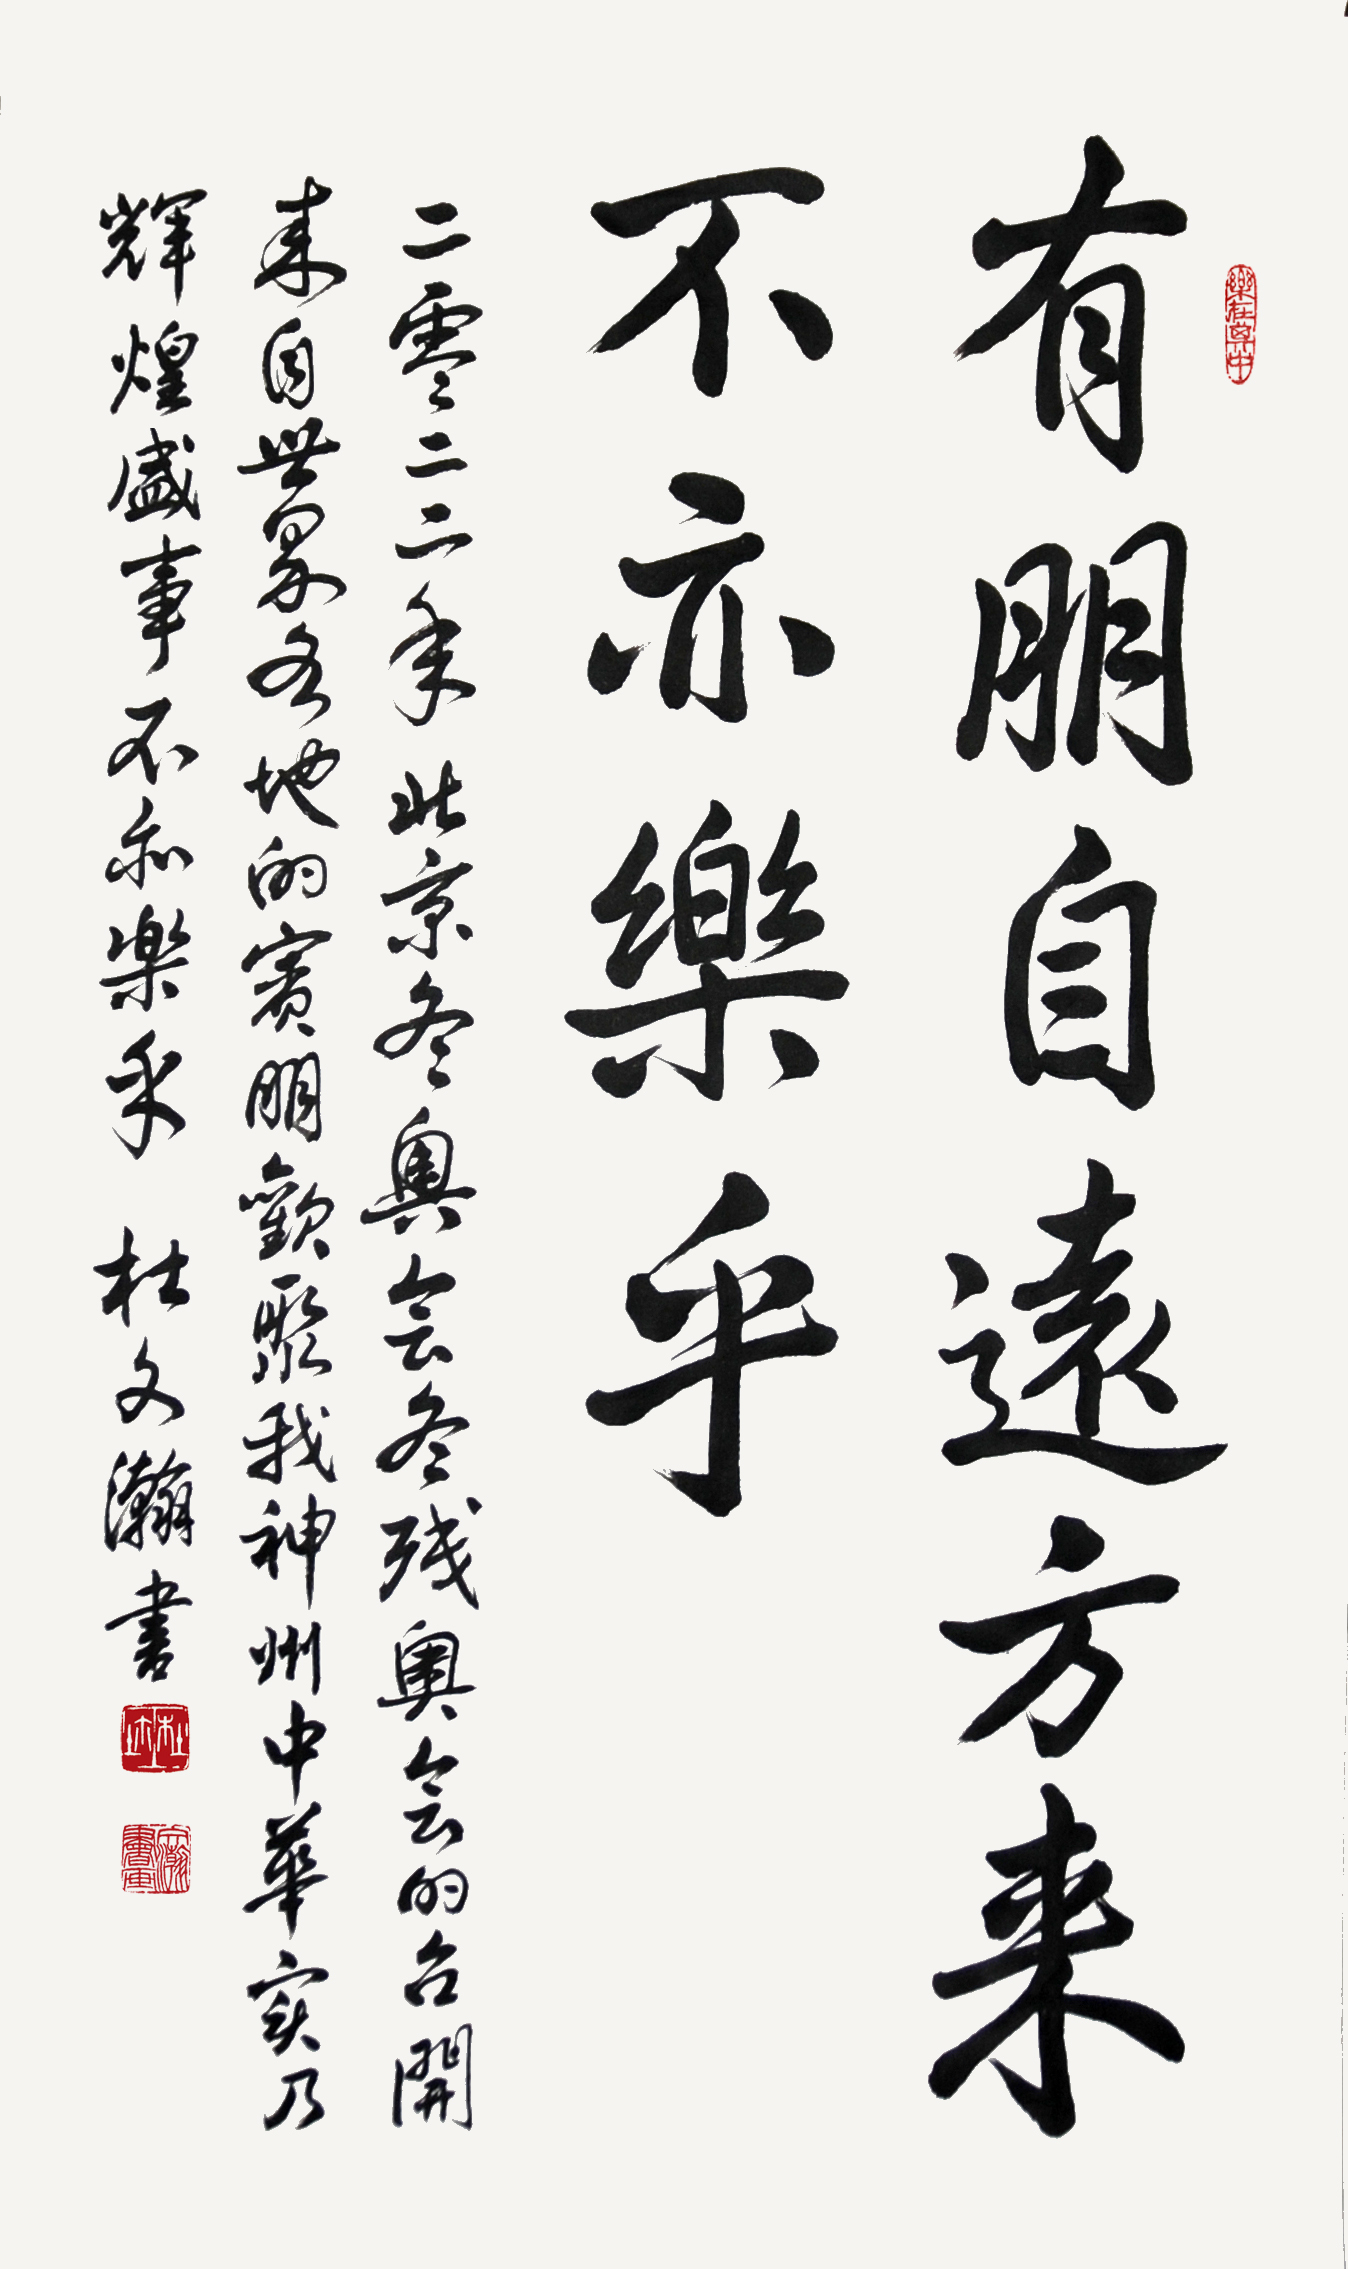 有朋自遠方来
不亦樂乎
二零二二年北京冬奥会冬残奥会的召開
来自世界各地的賓朋歡聚我神州中華实乃
輝煌盛事不亦樂乎 杜文瀚書
樂在其中